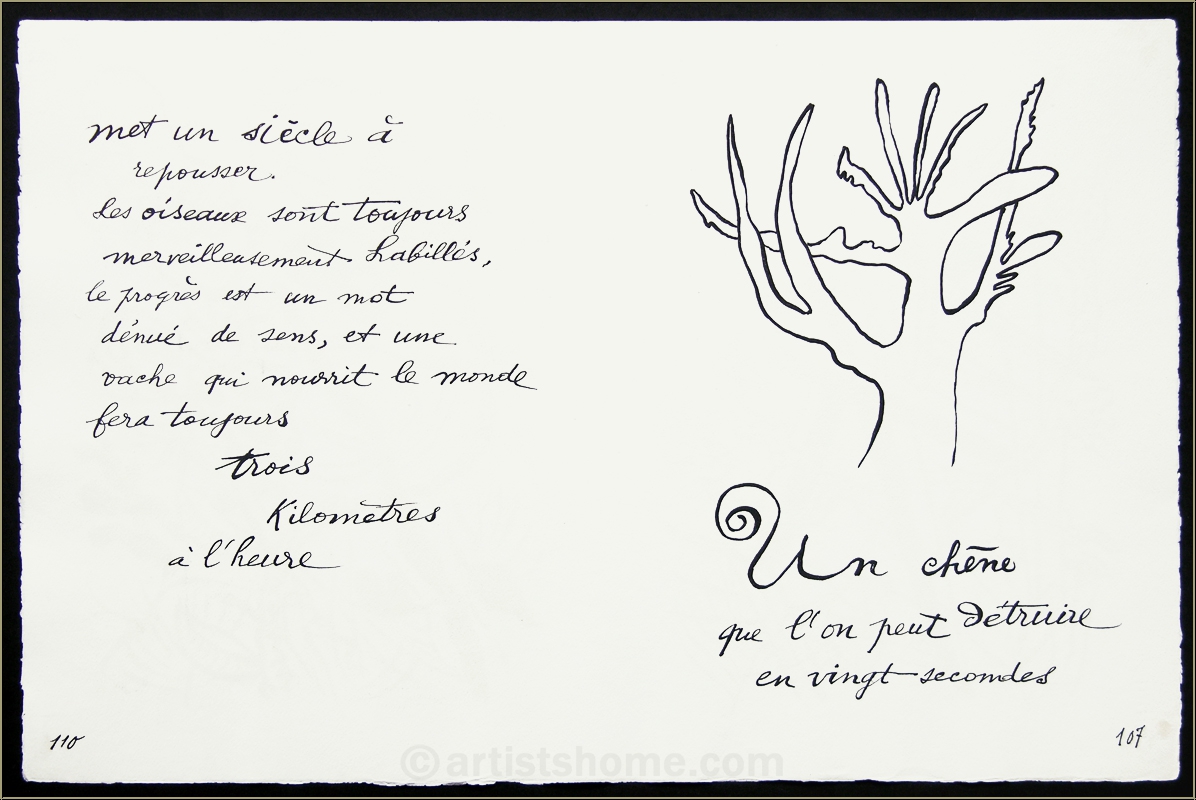 met un siècle à
repousser.
Les oiseaux sont toujours
merveilleusement habillés,
le progrès est un mot
dénué de sens, et une
vache qui nourrit le monde
fera toujours
trois
Kilomètres
à l'heure
110
Un chêne
que l'on peut détruire
en vingt secondes
107
©artistshome.com